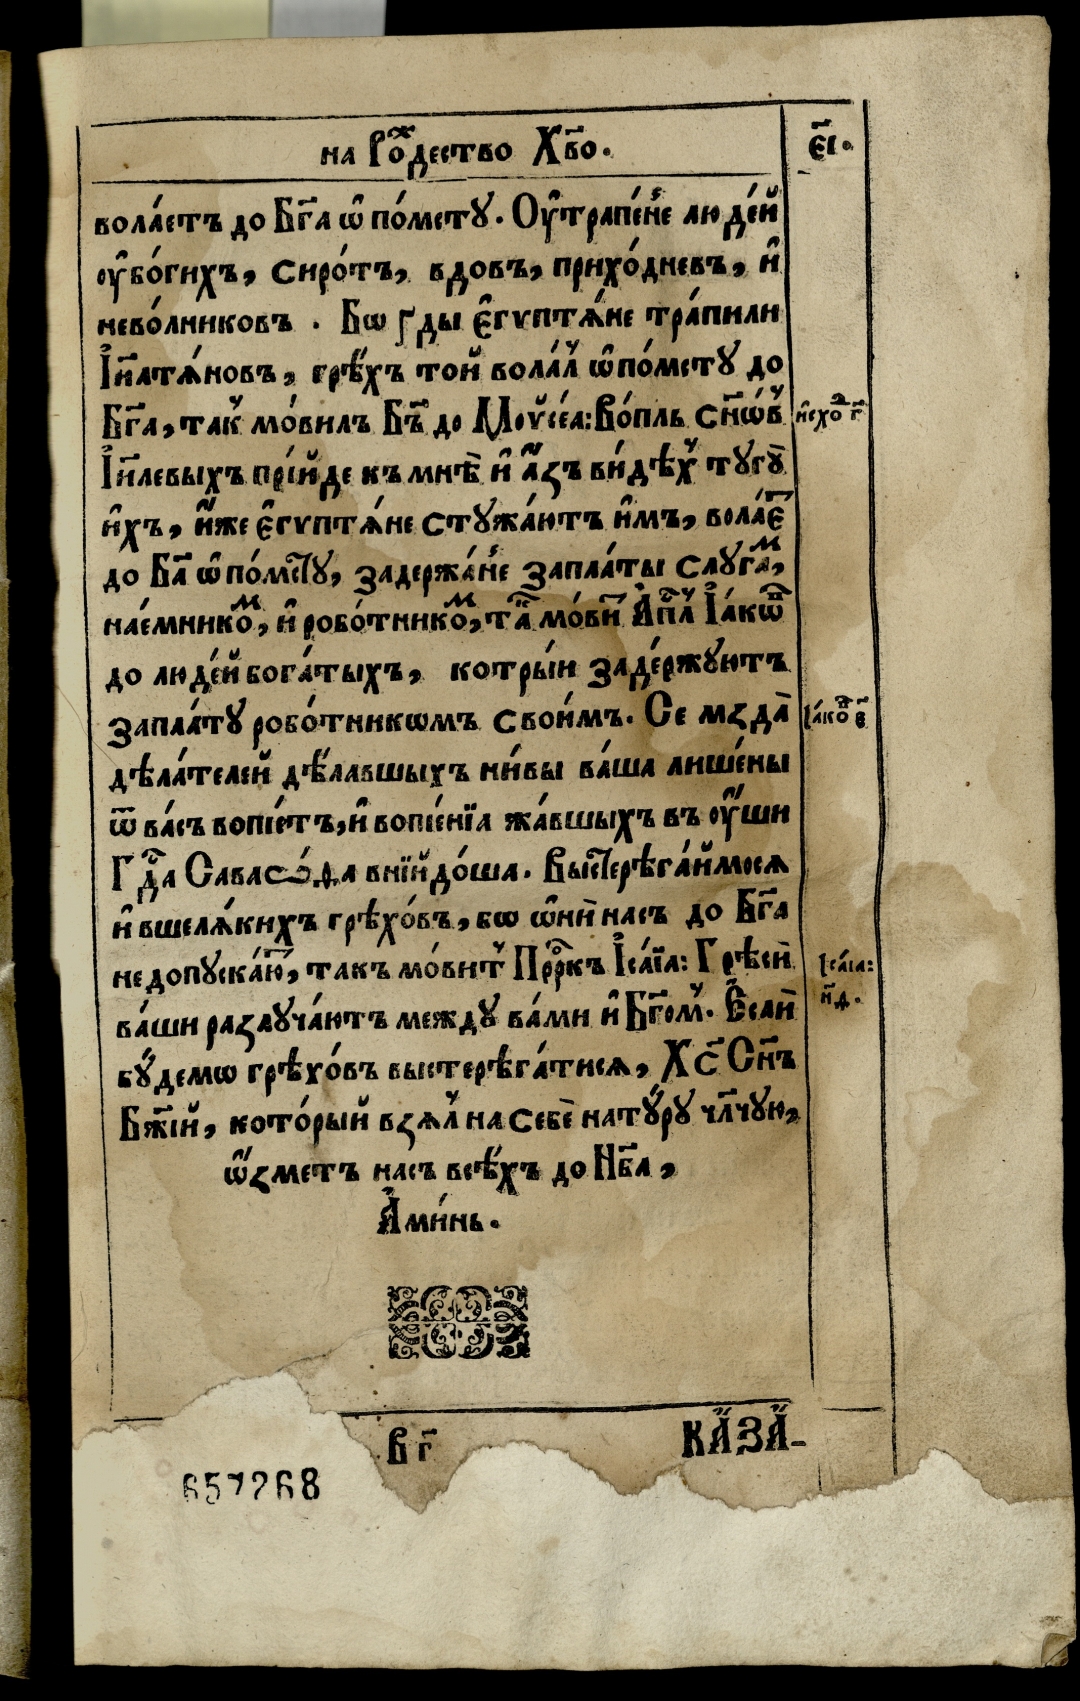 на Роⷤдество Хв҃о.
є҃і.
вола́етъ до Бг҃а ѡ̑ по́мсту. Оу̑трапе́н̾е лю де́й
оу̑бо́гихъ, сиро́тъ, вдовъ, прихо́дневъ, и̑
нево́лниковъ . Бѡ ґды Є̑гѵптѧ́не тра́пили
І̑и҃лтѧ́новъ, грѣ́хъ той вола́л̾ ѡ̑по́мсту до
Бг҃а, так̾ мо́вилъ Бъ҃ до Моѵ̈се́а: Во́пль сн҃ѡ́в̾
и̑схоⷣ г҃
І̑и҃левыхъ прі́йде къ мнѣ̀ и̑ а҆́ꙁъ ви́дѣх̾ тугꙋ̀
и̑хъ, и҆́же Є̑гѵптѧ́не стꙋжа́ютъ и̑мъ, вола́єⷮ
до Ба҃ ѡ̑по́мⷭ҇ту, задержа́н̾е запла́ты слуга́ⷨ,
нае́мникоⷨ, и̑ робо́тникоⷨ, таⷦ мо́виⷮ А҆пⷭ҇л̾ І҆а́кѡⷡ
до люде́й бога́тыхъ, котры́и заде́ржуютъ
запла́ту робо́тникѡмъ свои́мъ. Се мꙁда̀
І҆а́коⷡ є҃
дѣла́телей дѣ́лавшыхъ ни́вы ва́ша лише́ны
ѿ ва́съ вопіе́тъ, и̑ вопіе́нїа жа́вшыхъ въ оу҆́ши
Гⷭ҇да Саваѡ́ѳа внїйдо́ша. Выⷭ҇терѣга́ймосѧ
и̑ вшелѧ́кихъ грѣхо́въ, бѡ ѡ̑нѝ насъ до Бг҃а
не допуска́юⷮ, такъ мо́вит̾ Прⷪ҇ркъ І҆са́їа: Грѣсѝ
І҆са́іа:
н҃ѳ.
ва́ши раꙁлуча́ютъ между ва́ми и̑ Бг҃ом̾. Е҆́слѝ
бу́демѡ грѣхо́въ выстерѣга́тисѧ, Хс҃ Сн҃ъ
Бж҃ій, кото́рый вꙁѧл̾ на себѐ нату́ру чл҃чую,
ѡ҆́ꙁметъ насъ всѣ́хъ до Нб҃а,
А҆ми́нь.
в г҃
КА́ЗА́-
657268